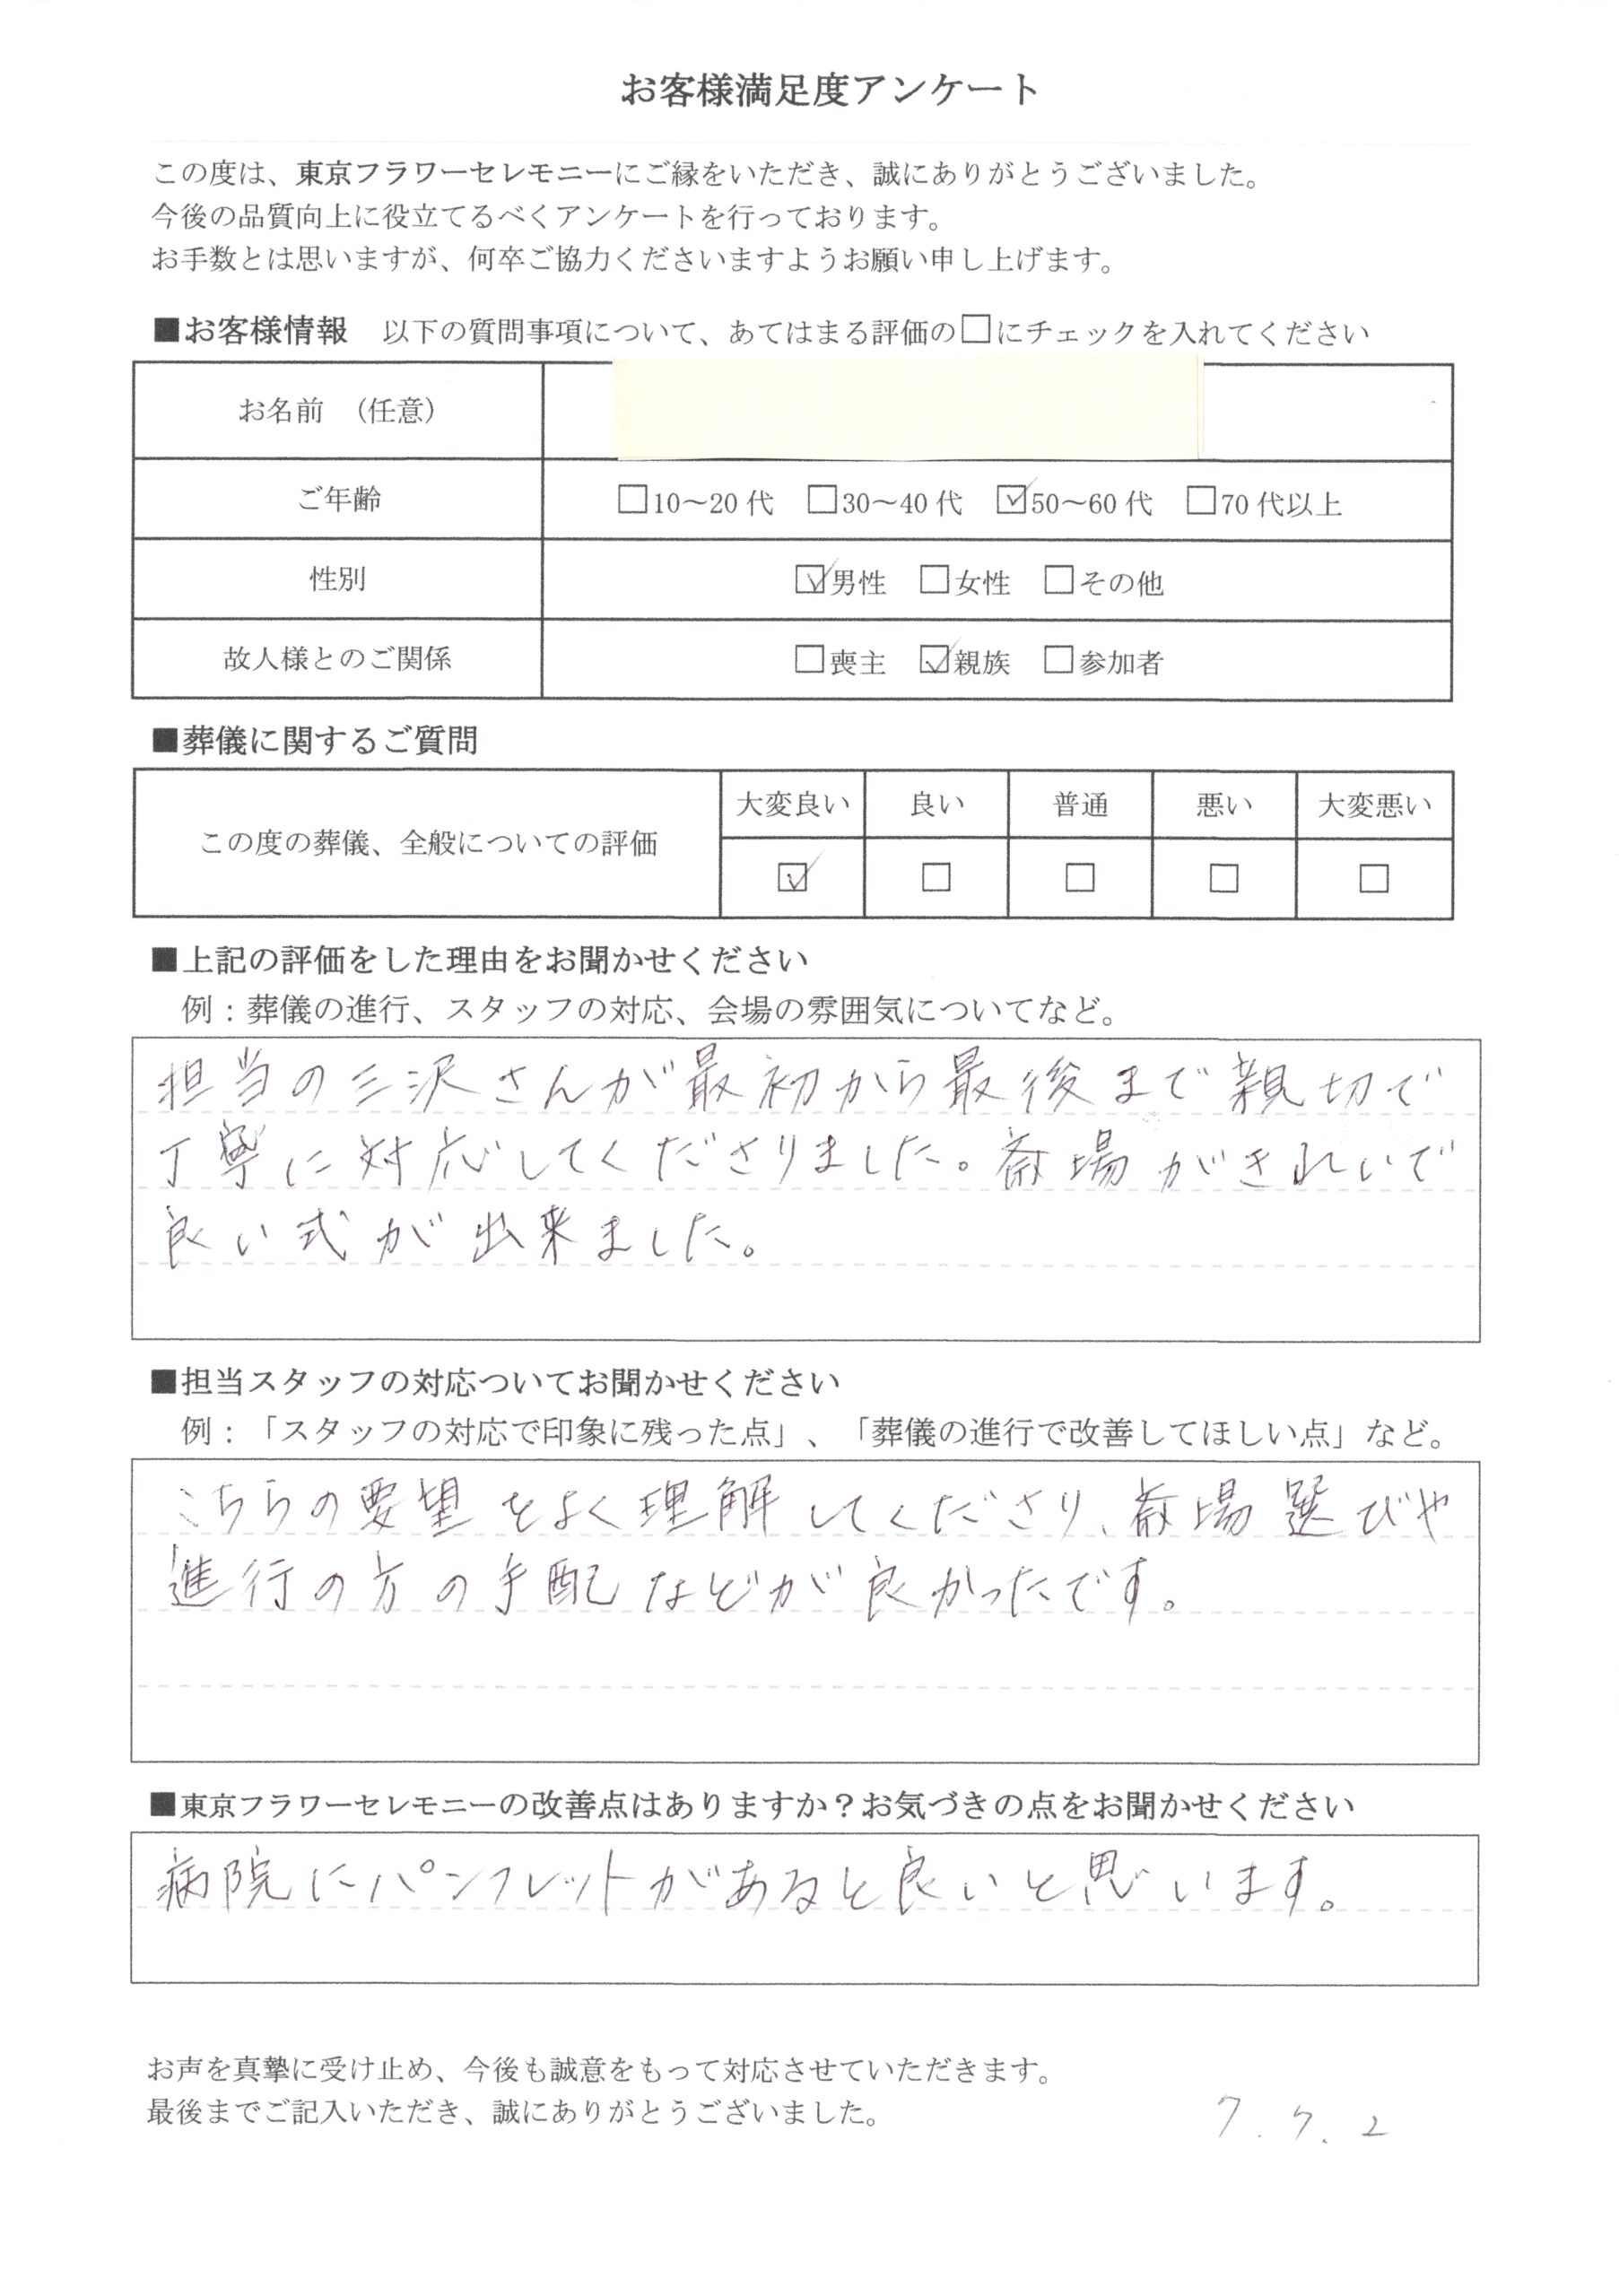 お客様満足度アンケート
この度は、東京フラワーセレモニーにご縁をいただき、誠にありがとうございました。
今後の品質向上に役立てるべくアンケートを行っております。
お手数とは思いますが、何卒ご協力くださいますようお願い申し上げます。
■お客様情報 以下の質問事項について、あてはまる評価の□にチェックを入れてください
お名前 (任意)
ご年齢 □10～20代 □30～40代 ☑50～60代 □70代以上
性別 ☑男性 □女性 □その他
故人様とのご関係 □喪主 ☑親族 □参加者
■葬儀に関するご質問
大変良い 良い 普通 悪い 大変悪い
この度の葬儀、全般についての評価
☑ □ □ □ □
■上記の評価をした理由をお聞かせください
例：葬儀の進行、スタッフの対応、会場の雰囲気についてなど。
担当の三沢さんが最初から最後まで親切で
丁寧に対応してくださりました。斎場がきれいで
良い式が出来ました。
■担当スタッフの対応ついてお聞かせください
例：「スタッフの対応で印象に残った点」、「葬儀の進行で改善してほしい点」など。
こちらの要望をよく理解してくださり、斎場選びや
進行の方の手配などが良かったです。
■東京フラワーセレモニーの改善点はありますか？お気づきの点をお聞かせください
病院にパンフレットがあると良いと思います。
お声を真摯に受け止め、今後も誠意をもって対応させていただきます。
最後までご記入いただき、誠にありがとうございました。
7.7.2